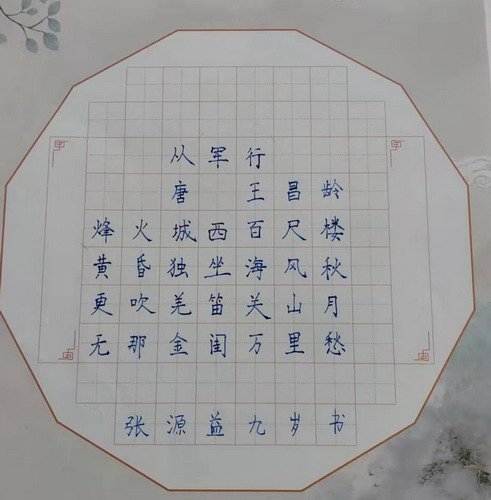 从军行
唐 王昌龄
烽火城西百尺楼
黄昏独坐海风秋
更吹羌笛关山月
无那金闺万里愁
张源益九岁书